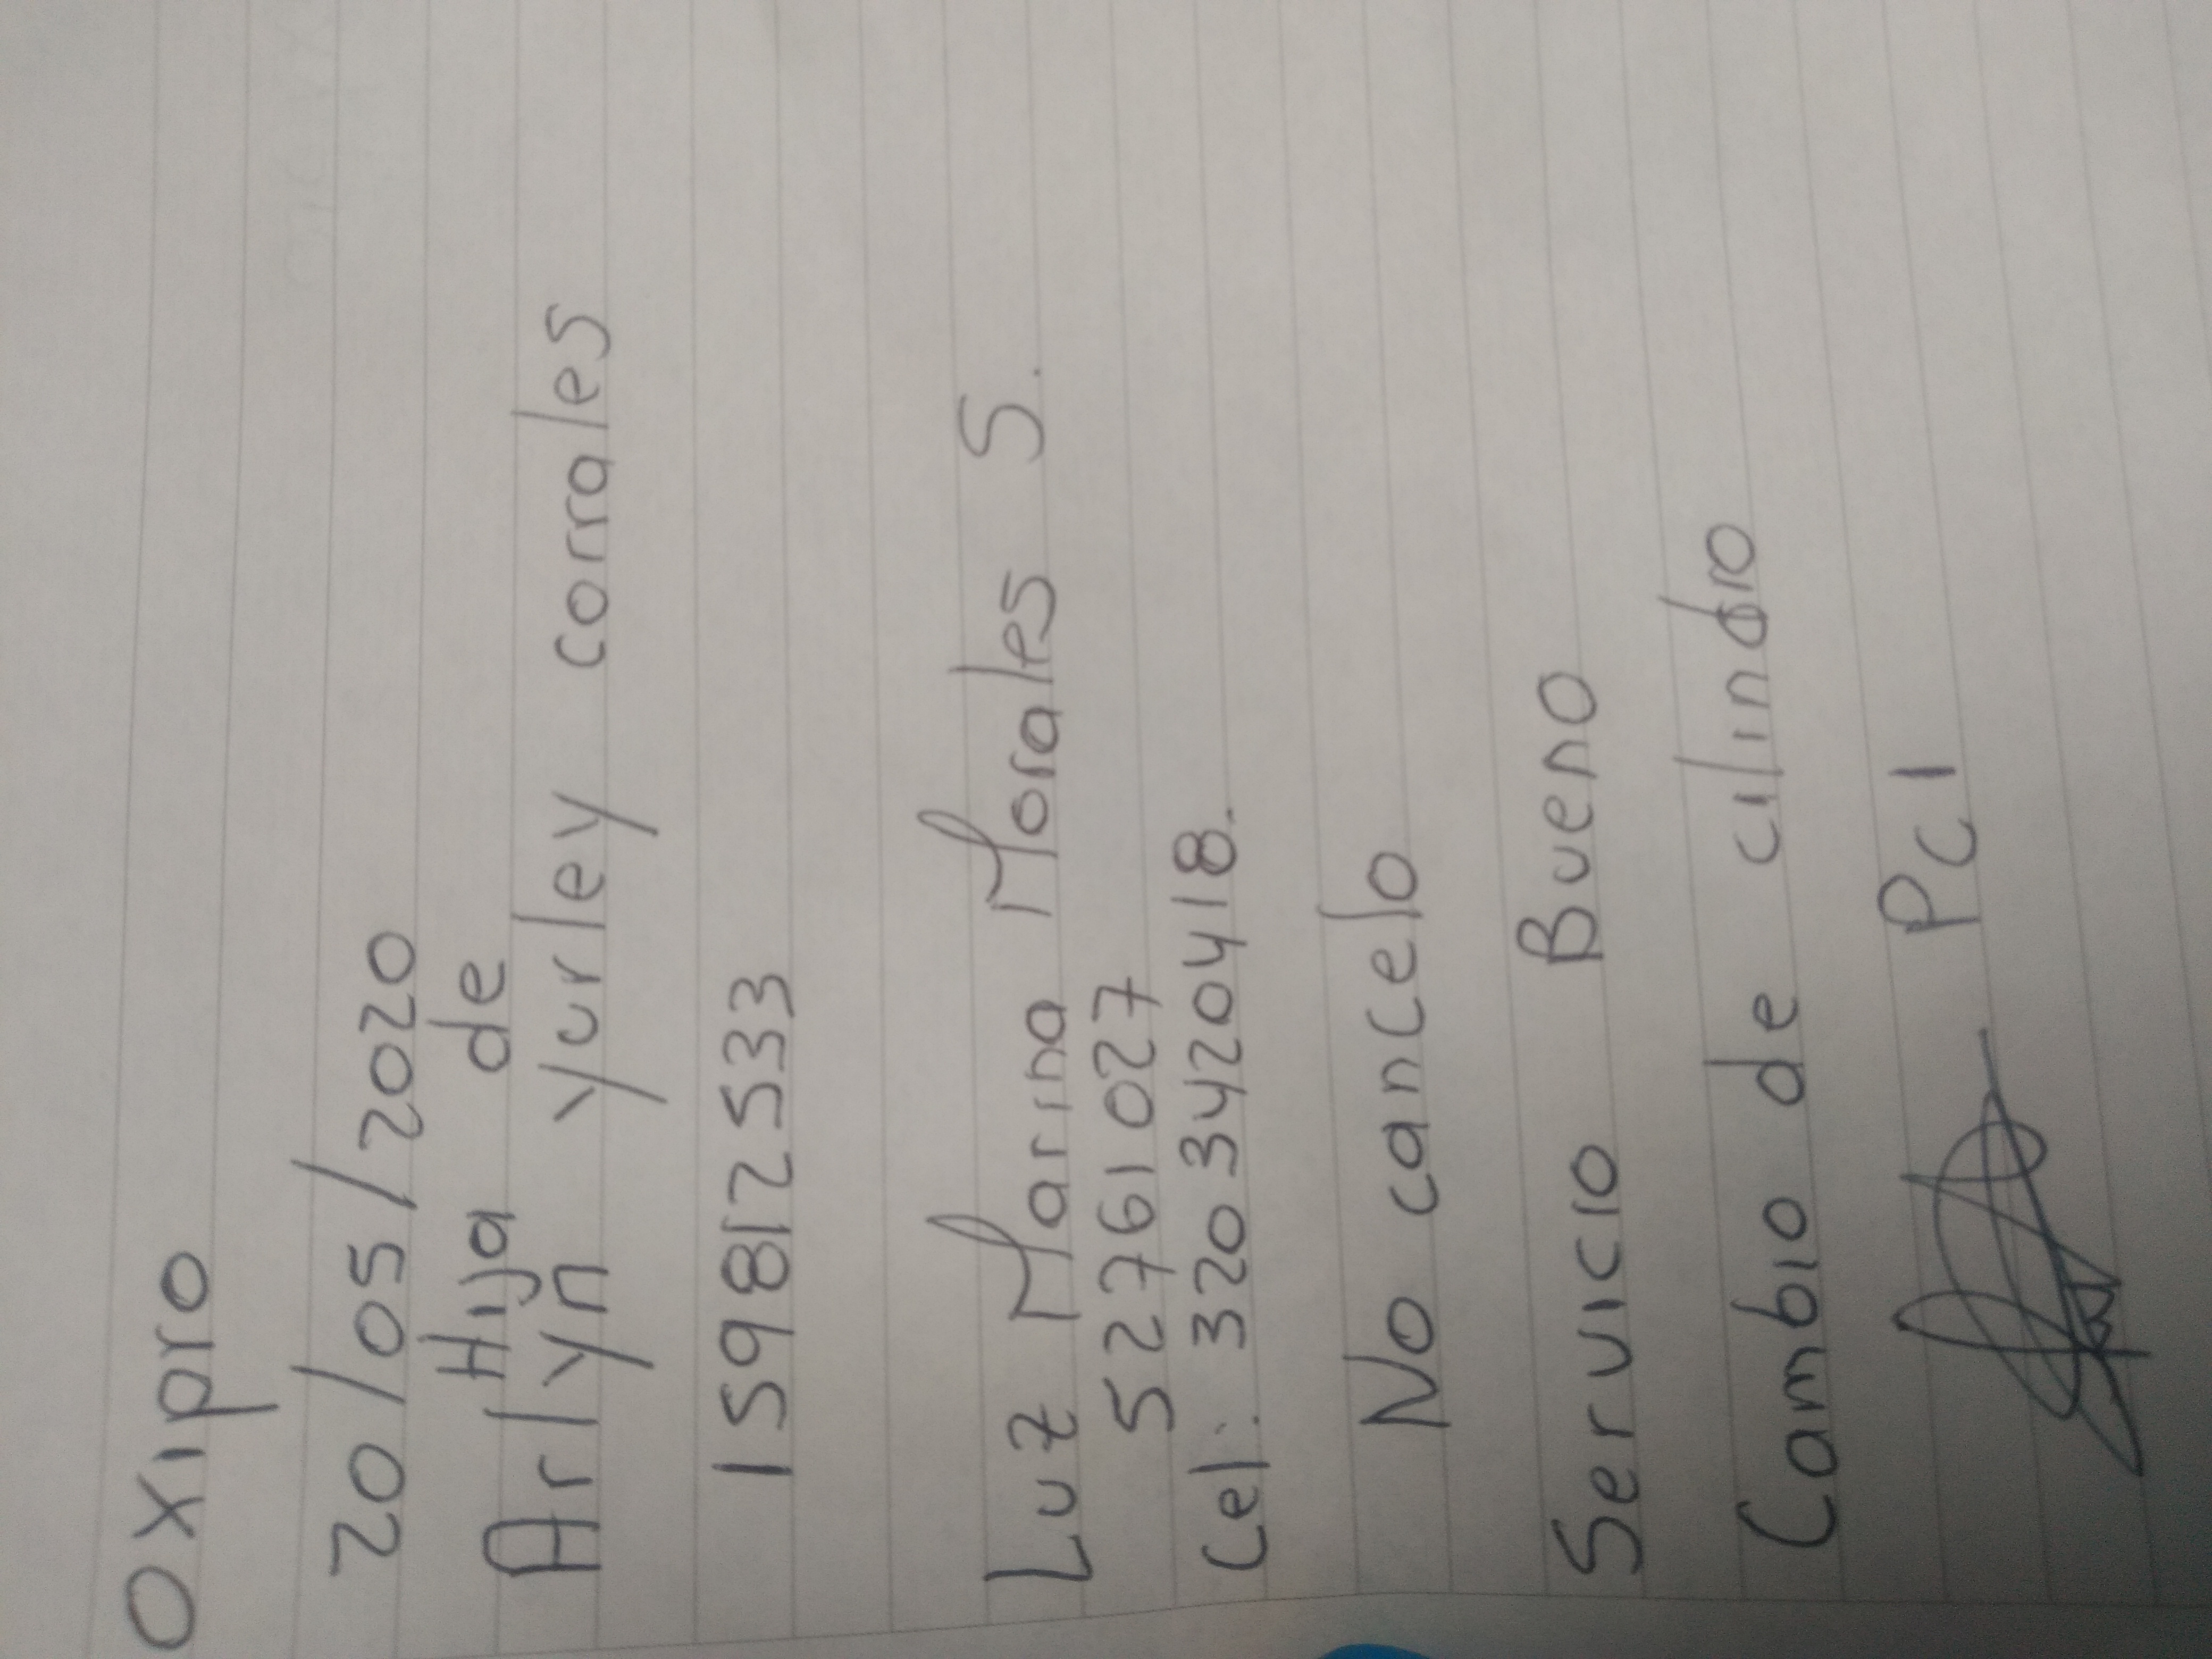 Oxipro
20/05/2020
Hija de
Arlyn Yurley corrales
1598172533
Luz Marina Morales S.
52761027
Cel: 3203420418.
No cancelo
Servicio Bueno
Cambio de cilindro
PCI